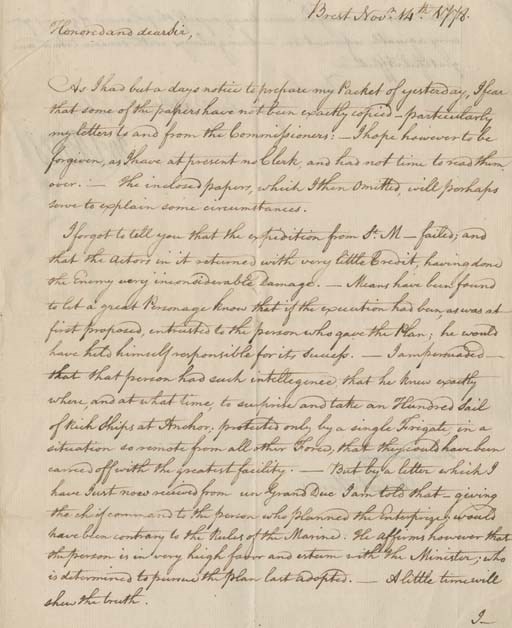 Brest Novr. 14th. 1778.
Honored and dear Sir,
As I had but a days notice to prepare my Packet of yesterday, I fear
that some of the papers have not been exactly copied – particularly
my letters to and from the Commissioners: – I hope however to be
forgiven, as I have at present no Clerk, and had not time to read them
over. — The inclosed papers, which I then omitted, will perhaps
serve to explain some circumstances.
I forgot to tell you that the expedition from St. M – failed; and
that the Actors in it returned with very little Credit, having done
the Enemy very inconsiderable Damage. — Means have been found
to let a great Personage know that if the execution had been, as was at
first proposed, entrusted to the person who gave the Plan; he would
have held himself responsible for its Success. — I am persuaded —
that that person had such intellegence that he knew exactly
where, and at what time, to surprise and take an Hundred Sail
of Rich Ships at Anchor, protected only by a single Frigate, in a
situation so remote from all other Force, that they could have been
carried off with the greatest facility. — But by a letter which I
have Just now received from un Grand Duc I am told that – giving
the chief command to the person who planned the Enterprize, would
have been contrary to the Rules of the Marine. He affirms however that
the person is in very heigh favor and esteem with the Minister; who
is determined to pursue the plan last adopted. — A little time will
shew the truth.
I –